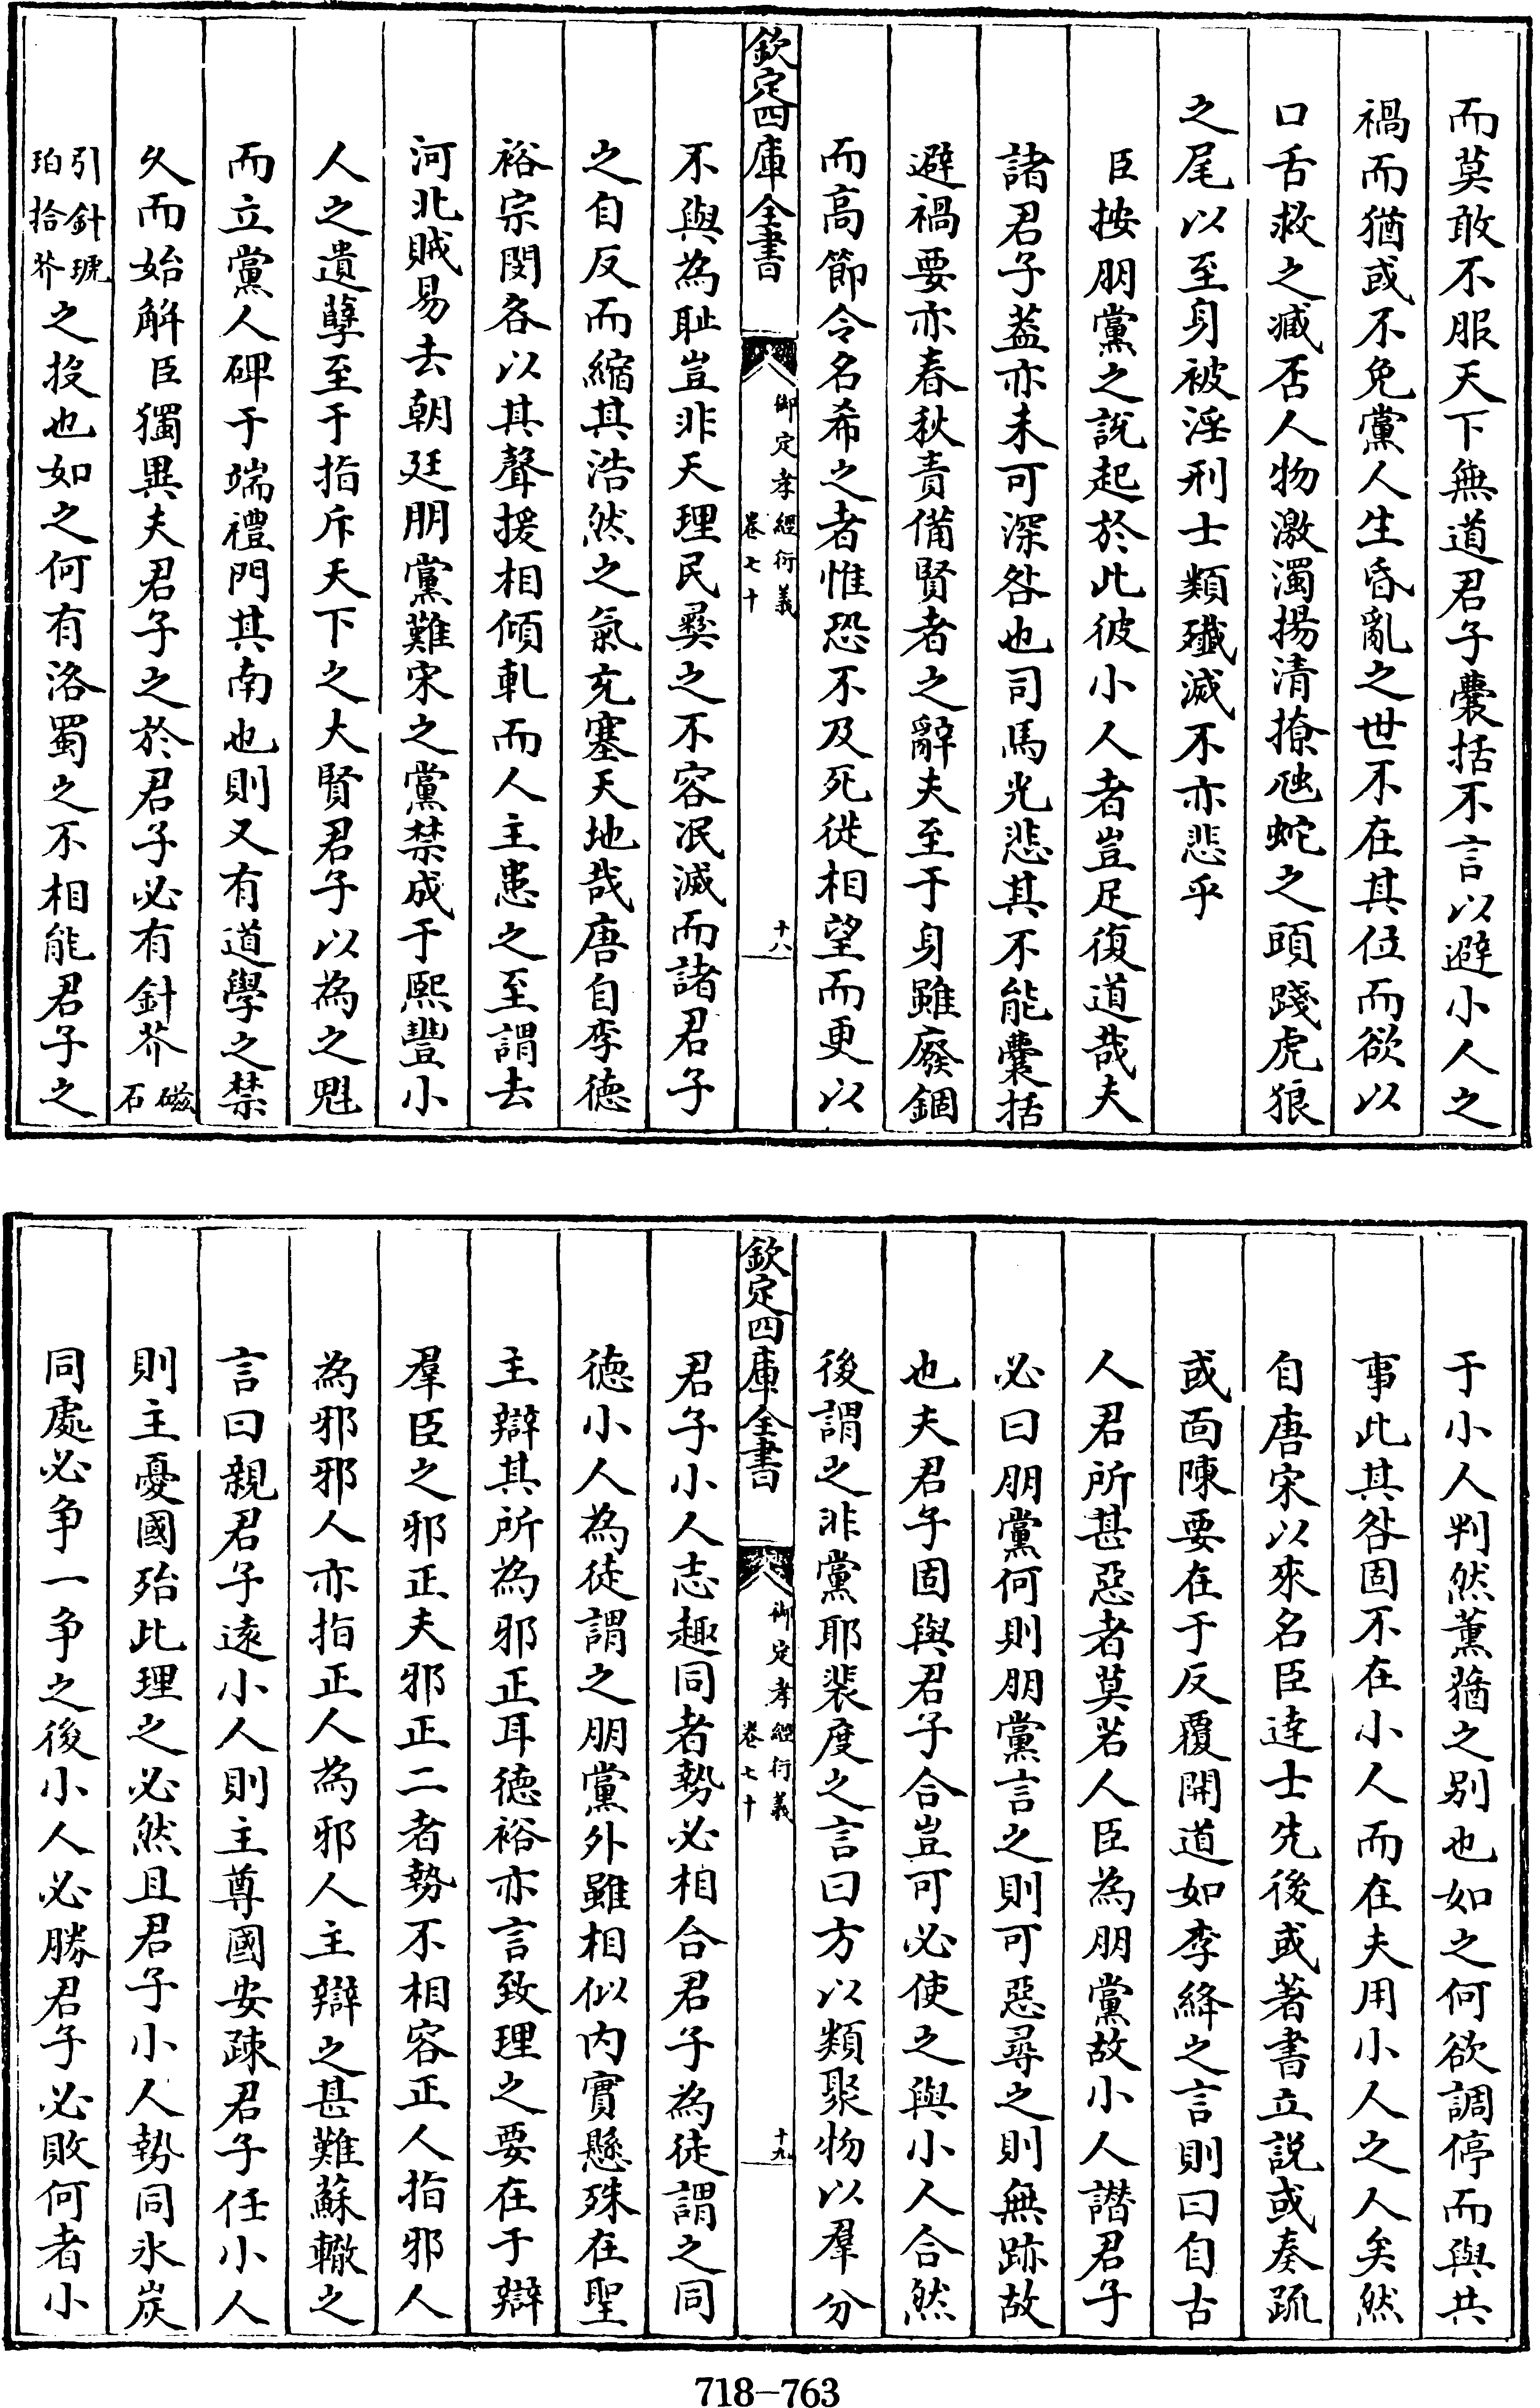 而莫敢不服天下無道君子囊括不言以避小人之
禍而猶或不免黨人生昏亂之世不在其位而欲以
口舌救之臧否人物激濁揚清撩虺蛇之頭踐虎狼
之尾以至身被淫刑士類殲滅不亦悲乎
臣按朋黨之說起於此彼小人者豈足復道哉夫
諸君子蓋亦未可深咎也司馬光悲其不能囊括
避禍要亦春秋責備賢者之辭夫至于身雖廢錮
而高節令名希之者惟恐不及死徙相望而更以
欽定四庫全書
御定孝經衍義
卷七十
十八
不與為恥豈非天理民彛之不容冺滅而諸君子
之自反而縮其浩然之氣充塞天地哉唐自李德
裕宗閔各以其聲援相傾軋而人主患之至謂去
河北賊易去朝廷朋黨難宋之黨禁成于熙豐小
人之遺孽至于指斥天下之大賢君子以為之魁
而立黨人碑于端禮門其南也則又有道學之禁
久而始解臣獨異夫君子之於君子必有針芥磁石
引針琥珀拾芥之投也如之何有洛蜀之不相能君子之
于小人判然薰蕕之别也如之何欲調停而與共
事此其咎固不在小人而在夫用小人之人矣然
自唐宋以來名臣達士先後或著書立説或奏疏
或面陳要在于反覆開道如李絳之言則曰自古
人君所甚惡者莫若人臣為朋黨故小人譖君子
必曰朋黨何則朋黨言之則可惡尋之則無跡故
也夫君子固與君子合豈可必使之與小人合然
後謂之非黨耶裴度之言曰方以類聚物以羣分
欽定四庫全書
御定孝經衍義
卷七十
十九
君子小人志趣同者勢必相合君子為徒謂之同
德小人為徒謂之朋黨外雖相似内實懸殊在聖
主辯其所為邪正耳德裕亦言致理之要在于辯
羣臣之邪正夫邪正二者勢不相容正人指邪人
為邪邪人亦指正人為邪人主辯之甚難蘇轍之
言曰親君子遠小人則主尊國安疎君子任小人
則主憂國殆此理之必然且君子小人勢同氷炭
同處必争一争之後小人必勝君子必敗何者小
718-763